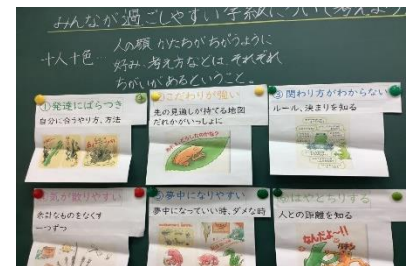 みんなが過ごしやすい手紙について考えよう
十人十色… 人の顔 かたちがちがうように
好み、考え方などは、それぞれ
ちがいがあるということ。
①発達にばらつき
自分に合うやり方、方法
②こだわりが強い
先の見通しが持てる地図
だれかがいっしょに
③関わり方がわからない
ルール、決まりを知る
気が散りやすい
余計なものをなくす
一つずつ
⑤夢中になりやすい
夢中になっていい時、ダメな時
⑥はやとちりする
人との距離を知る
なんだよー!!